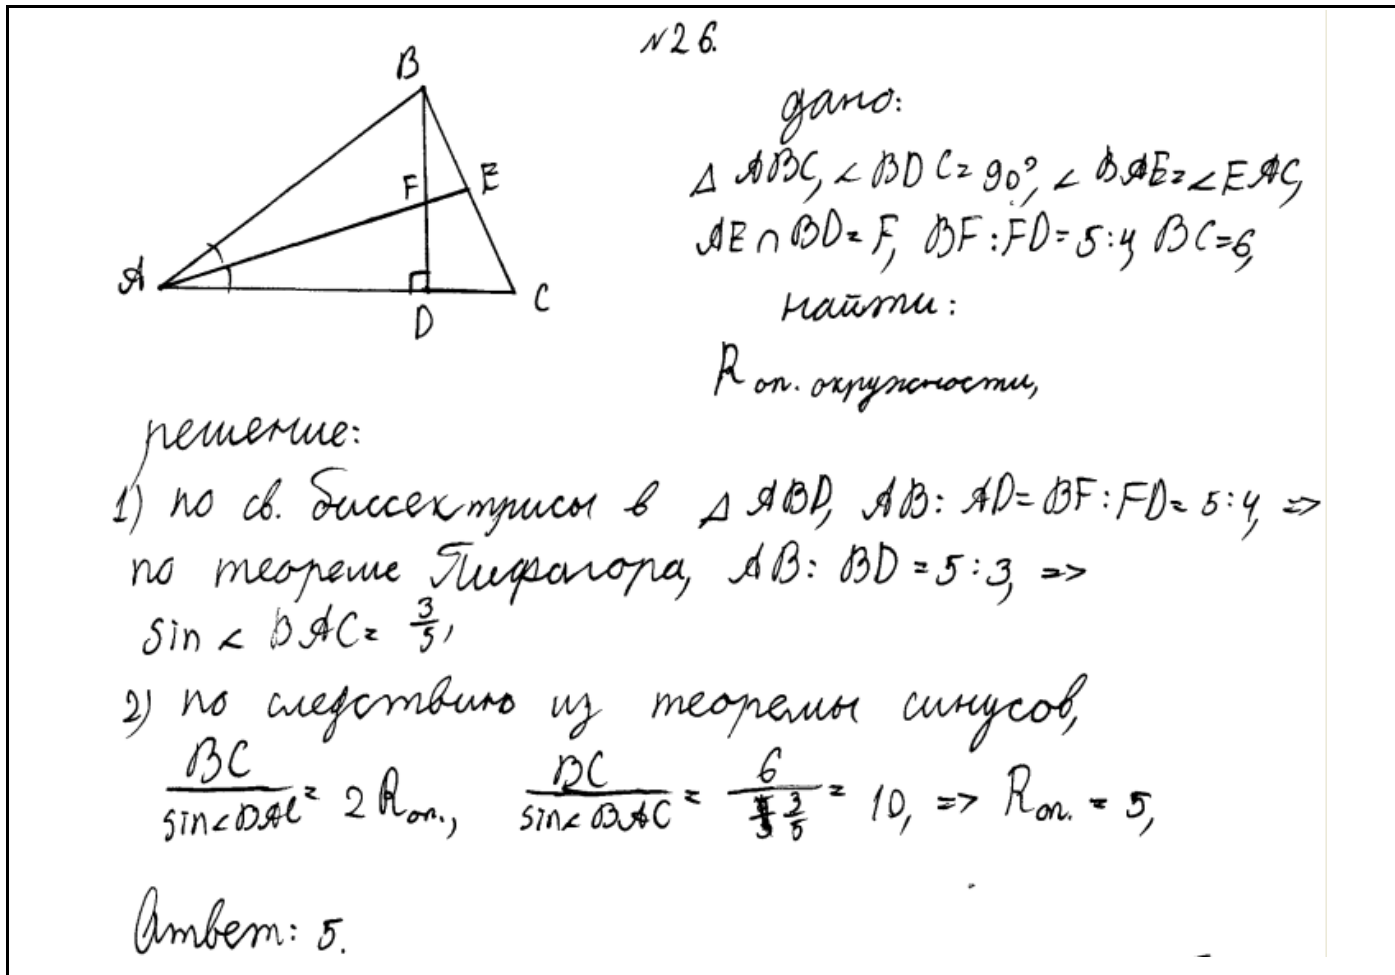 №26.
B
дано:
F E
△ ABC, ∠ BDC = 90°, ∠ BAE = ∠ EAC,
AE ∩ BD = F, BF : FD = 5 : 4, BC = 6,
A
D
C
найти:
R оп. окружности,
решение:
1) по св. биссектрисы в △ ABD, AB : AD = BF : FD = 5 : 4, =>
по теореме Пифагора, AB : BD = 5 : 3, =>
sin ∠ BAC = 3/5,
2) по следствию из теоремы синусов,
BC / sin∠BAC = 2 R оп., BC / sin∠BAC = 6 / (3/5) = 10, => R оп. = 5,
Ответ: 5.